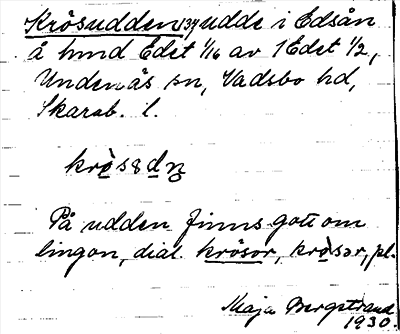 Krösudden, udde i Edsån
å hmd Edet 1/16 av 1 Edet 1/2,
Undenäs sn, Vadsbo hd,
Skarab. l.
På udden finns gott om
lingon, dial. krösor, pl.
Maja Bergstrand
1930.